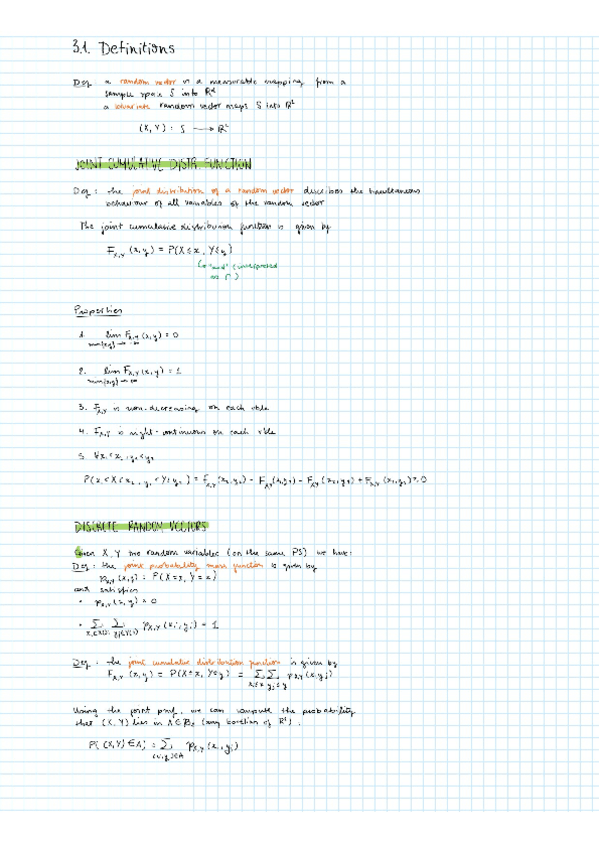 3.1. Definitions
Def a random vector is a measurable mapping from a
sample space S into ℝᵈ
a bivariate random vector maps S into ℝ²
(X, Y) : S → ℝ²
JOINT CUMULATIVE DISTR. FUNCTION
Def : the joint distribution of a random vector describes the simultaneous
behaviour of all variables of the random vector
The joint cumulative distribution function is given by
F_X,Y (x, y) = P(X ≤ x, Y ≤ y)
"and" (interpreted
as ∩)
Properties
1. lim F_X,Y (x, y) = 0
min(x,y) → -∞
2. lim F_X,Y (x, y) = 1
min(x,y) → ∞
3. F_X,Y is non-decreasing on each vble
4. F_X,Y is right-continuous on each vble
5. ∀x₁<x₂, y₁<y₂
P(x₁<X≤x₂, y₁<Y≤y₂) = F_X,Y(x₂,y₂) - F_X,Y(x₁,y₂) - F_X,Y(x₂,y₁) + F_X,Y(x₁,y₁) ≥ 0
DISCRETE RANDOM VECTORS
Given X, Y two random variables (on the same PS) we have:
Def : the joint probability mass function is given by
p_X,Y (x,y) = P(X=x, Y=y)
and satisfies
• p_X,Y (x, y) ≥ 0
• ∑ ∑ p_X,Y (xᵢ, yⱼ) = 1
Def : the joint cumulative distribution function is given by
F_X,Y (x, y) = P(X≤x, Y≤y) = ∑ ∑ p_X,Y(xᵢ, yⱼ)
xᵢ≤x yⱼ≤y
Using the joint pmf, we can compute the probability
that (X, Y) lies in A ∈ β₂ (any borelian of ℝ²).
P((X,Y) ∈ A) = ∑ p_X,Y (xᵢ, yⱼ)
(xᵢ,yⱼ)∈A